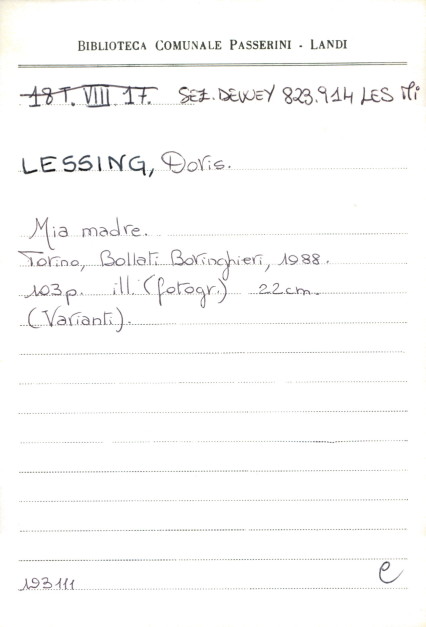 BIBLIOTECA COMUNALE PASSERINI - LANDI
18 T. VIII 17. SEZ. DEWEY 823.914 LES Mi
LESSING, Doris.
Mia madre.
Torino, Bollati Boringhieri, 1988.
103p. ill. (fotogr.) 22cm.
(Varianti).
193111 e